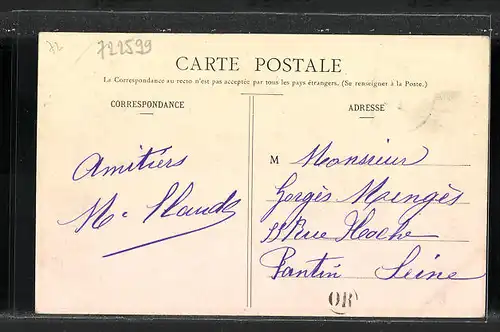 72
722599
CARTE POSTALE
La Correspondance au recto n'est pas acceptée par tous les pays étrangers. (Se renseigner à la Poste.)
CORRESPONDANCE
ADRESSE
Amitiérs
M
M Monsieur
Gorgès Maingès
Rue Hoche
Pantin Seine
OR